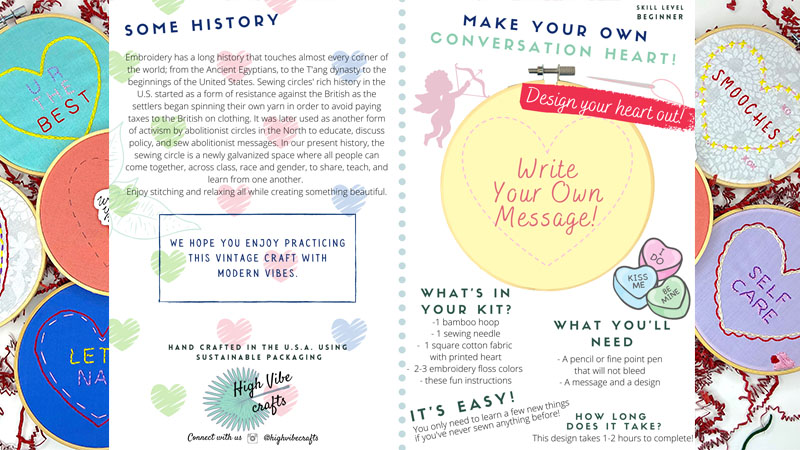 SOME HISTORY
Embroidery has a long history that touches almost every corner of
the world; from the Ancient Egyptians, to the T'ang dynasty to the
beginnings of the United States. Sewing circles' rich history in the
U.S. started as a form of resistance against the British as the
settlers began spinning their own yarn in order to avoid paying
taxes to the British on clothing. It was later used as another form
of activism by abolitionist circles in the North to educate, discuss
policy, and sew abolitionist messages. In our present history, the
sewing circle is a newly galvanized space where all people can
come together, across class, race and gender, to share, teach, and
learn from one another.
Enjoy stitching and relaxing all while creating something beautiful.
WE HOPE YOU ENJOY PRACTICING
THIS VINTAGE CRAFT WITH
MODERN VIBES.
HAND CRAFTED IN THE U.S.A. USING
SUSTAINABLE PACKAGING
High Vibe
crafts
Connect with us @highvibecrafts
SKILL LEVEL
BEGINNER
MAKE YOUR OWN
CONVERSATION HEART!
Design your heart out!
Write
Your Own
Message!
I
DO
KISS
ME
BE
MINE
WHAT'S IN
YOUR KIT?
-1 bamboo hoop
- 1 sewing needle
- 1 square cotton fabric
with printed heart
- 2-3 embroidery floss colors
- these fun instructions
WHAT YOU'LL
NEED
- A pencil or fine point pen
that will not bleed
- A message and a design
IT'S EASY!
You only need to learn a few new things
if you've never sewn anything before!
HOW LONG
DOES IT TAKE?
This design takes 1-2 hours to complete!
U R
THE
BEST
LET
NA
SMOOCHES
XOX
SELF
CARE